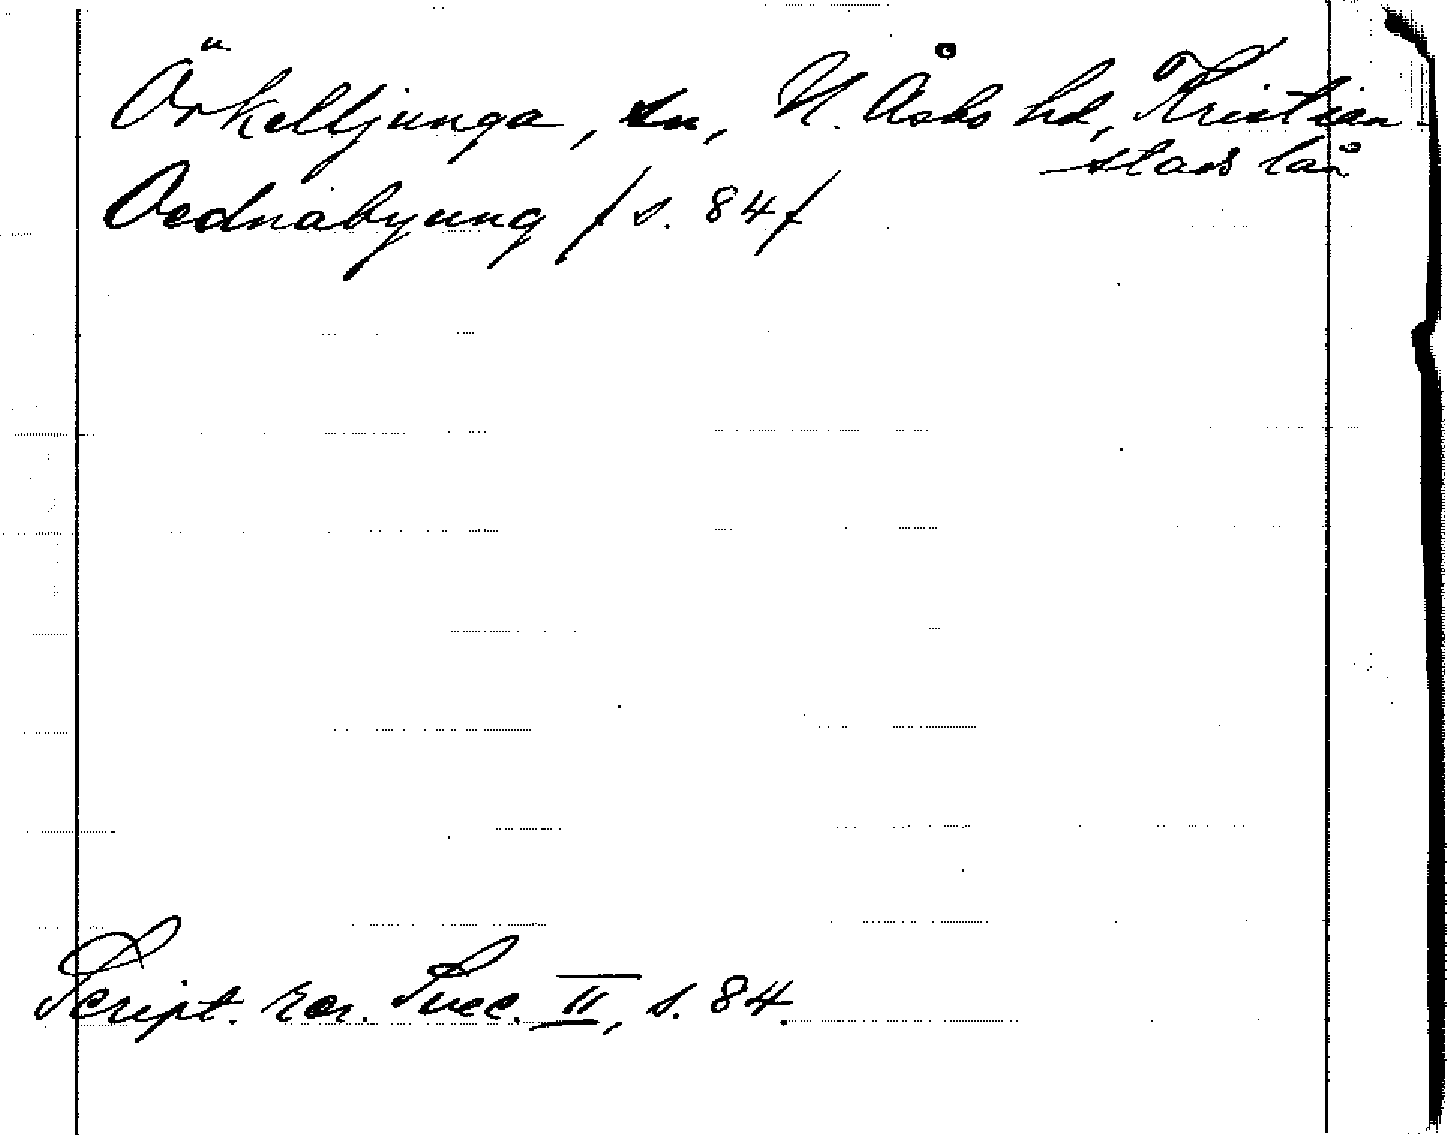 Örkelljunga, sn, N. Åsbo hd, Kristian
stads län
Oednabyung /s. 84/
Script. rer. Suec. II, s. 84.